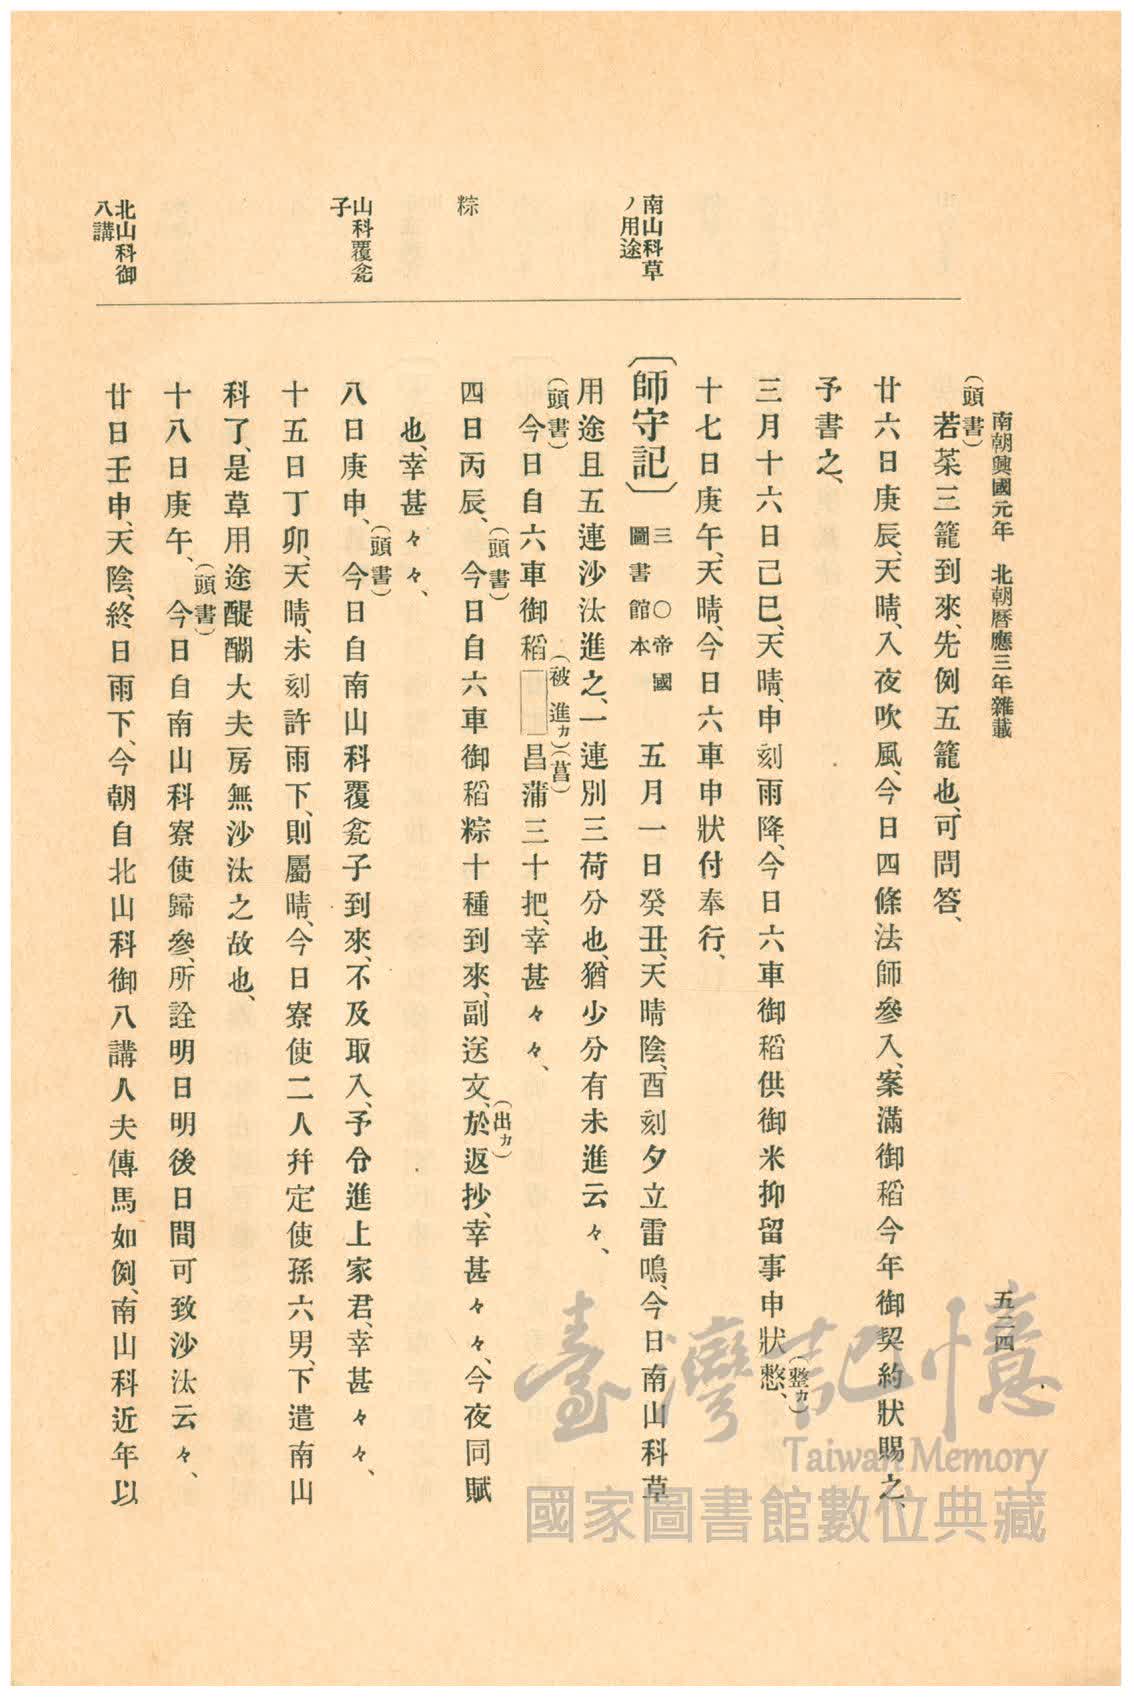 南朝興國元年　北朝曆應三年雜載
五二四
（頭書）
若菜三籠到來、先例五籠也、可問答、
廿六日庚辰、天晴、入夜吹風、今日四條法師參入、案滿御稻今年御契約狀賜之、
予書之、
三月十六日己巳、天晴、申刻雨降、今日六車御稻供御米抑留事申狀憗、（整カ）
十七日庚午、天晴、今日六車申狀付奉行、
南山科草ノ用途
〔師守記〕三　○帝國圖書館本　五月一日癸丑、天晴陰、酉刻夕立雷鳴、今日南山科草
用途且五連沙汰進之、一連別三荷分也、猶少分有未進云々、
（頭書）（被進カ）（菖）
今日自六車御稻□昌蒲三十把、幸甚々々、
粽
四日丙辰、（頭書）今日自六車御稻粽十種到來、副送文、於返抄、（出カ）幸甚々々、今夜同賦
也、幸甚々々、
山科覆瓫子
八日庚申、（頭書）今日自南山科覆瓫子到來、不及取入、予令進上家君、幸甚々々、
十五日丁卯、天晴、未刻許雨下、則屬晴、今日寮使二人幷定使孫六男、下遣南山
科了、是草用途醍醐大夫房無沙汰之故也、
十八日庚午、（頭書）今日自南山科寮使歸參、所詮明日明後日間可致沙汰云々、
北山科御八講
廿日壬申、天陰、終日雨下、今朝自北山科御八講人夫傳馬如例、南山科近年以
臺灣記憶
Taiwan Memory
國家圖書館數位典藏